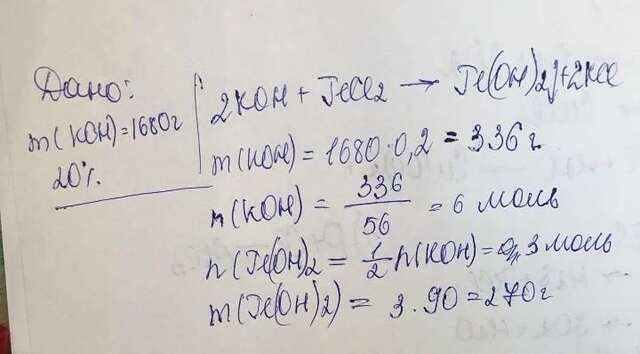 Дано:
m(KOH)=1680г
20%.
2KOH + FeCl2 → Fe(OH)2↓+2KCl
m(KOH) = 1680·0,2 = 336 г
n(KOH) = 336/56 = 6 моль
n(Fe(OH)2 = 1/2 n(KOH) = 3 моль
m(Fe(OH)2) = 3·90=270г